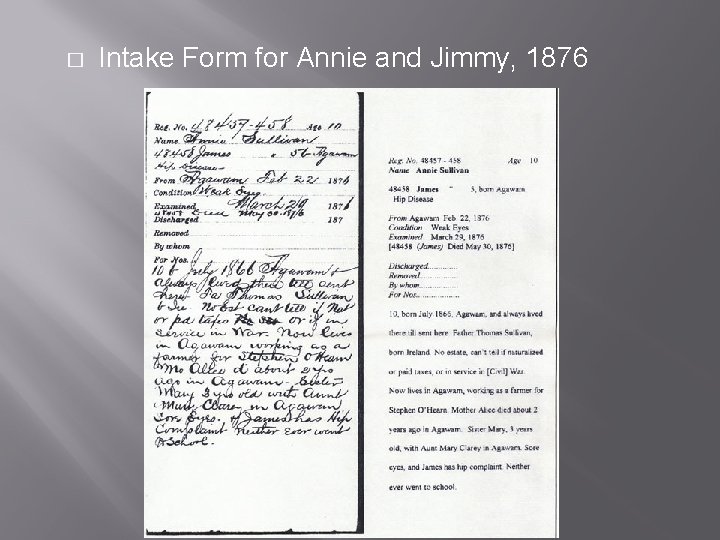 Intake Form for Annie and Jimmy, 1876
Reg. No. 48457-458 Age 10
Name Annie Sullivan
48458 James " 5 b Agawam
Hip Disease
From Agawam Feb 22 1876
Condition Weak Eyes
Examined March 29 1876
Died May 30, 1876
Discharged 187
Removed
By whom
For Nos.
10 b July 1866 Agawam &
always lived there till sent
here Fa Thomas Sullivan
b Ire. No Est cant tell if Nat
or pd taxes or if in
service in War. Now lives
in Agawam working as a
farmer for Stephen O'Hearn
Mo Alice d about 2 yrs
ago in Agawam - Sister
Mary 3 yrs old with Aunt
Mary Clare in Agawam
Sore Eyes. & James has Hip
Complaint Neither Ever went
to School.
Reg. No. 48457 - 458 Age 10
Name Annie Sullivan
48458 James " 5, born Agawam
Hip Disease
From Agawam Feb 22, 1876
Condition Weak Eyes
Examined March 29, 1876
[48458 (James) Died May 30, 1876]
Discharged..............
Removed..............
By whom..............
For Nos..............
10, born July 1866, Agawam, and always lived
there till sent here. Father Thomas Sullivan,
born Ireland. No estate, can't tell if naturalized
or paid taxes, or in service in [Civil] War.
Now lives in Agawam, working as a farmer for
Stephen O'Hearn. Mother Alice died about 2
years ago in Agawam. Sister Mary, 3 years
old, with Aunt Mary Clarey in Agawam. Sore
eyes, and James has hip complaint. Neither
ever went to school.